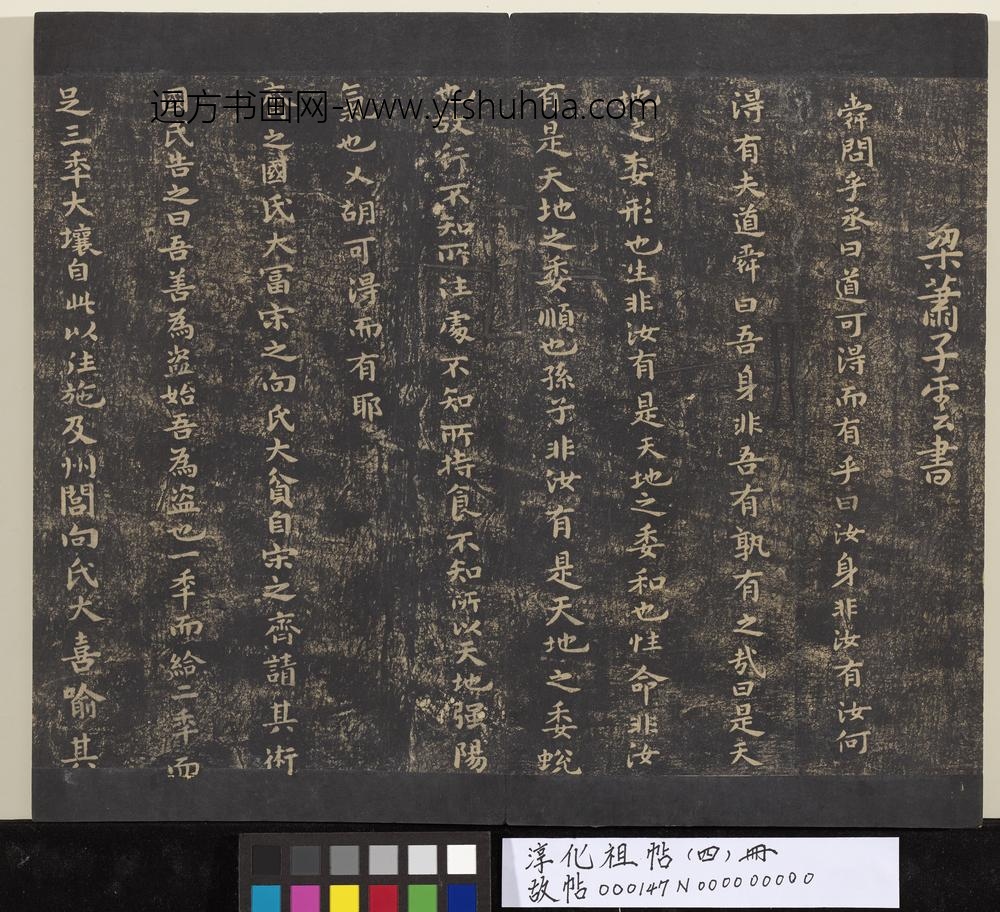 梁蕭子雲書
舜問乎丞曰道可淂而有乎曰汝身非汝有汝何
淂有夫道舜曰吾身非吾有孰有之哉曰是天
地之委形也生非汝有是天地之委和也性命非汝
有是天地之委順也孫子非汝有是天地之委蛻
也故行不知所往處不知所持食不知所以天地强陽
氣也又胡可淂而有耶
齊之國氏大富宋之向氏大貧自宋之齊請其術
國氏告之曰吾善為盜始吾為盜也一季而給二季而
足三季大壤自此以往施及州閭向氏大喜喻其
远方书画网-www.yfshuhua.com
淳化祖帖(四)冊
故帖000147N000000000